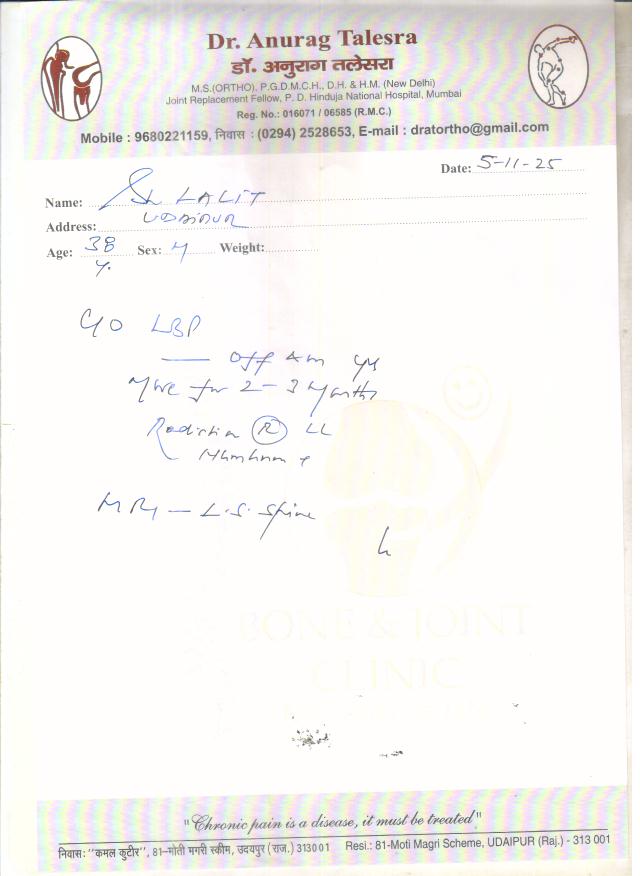 Dr. Anurag Talesra
डॉ. अनुराग तलेसरा
M.S.(ORTHO), P.G.D.M.C.H., D.H. & H.M. (New Delhi)
Joint Replacement Fellow, P. D. Hinduja National Hospital, Mumbai
Reg. No.: 016071 / 06585 (R.M.C.)
Mobile : 9680221159, निवास : (0294) 2528653, E-mail : dratortho@gmail.com
Date: 5-11-25
Name: LALIT
Address: UDAIPUR
Age: 38 Sex: M Weight:
y.
C/O LBP
off & on yrs
More for 2-3 Months
Radiation R LL
MRI — L.S. Spine
BONE & JOINT
CLINIC
"Chronic pain is a disease, it must be treated"
निवास: "कमल कुटीर", 81-मोती मगरी स्कीम, उदयपुर (राज.) 313001 Resi.: 81-Moti Magri Scheme, UDAIPUR (Raj.) - 313 001